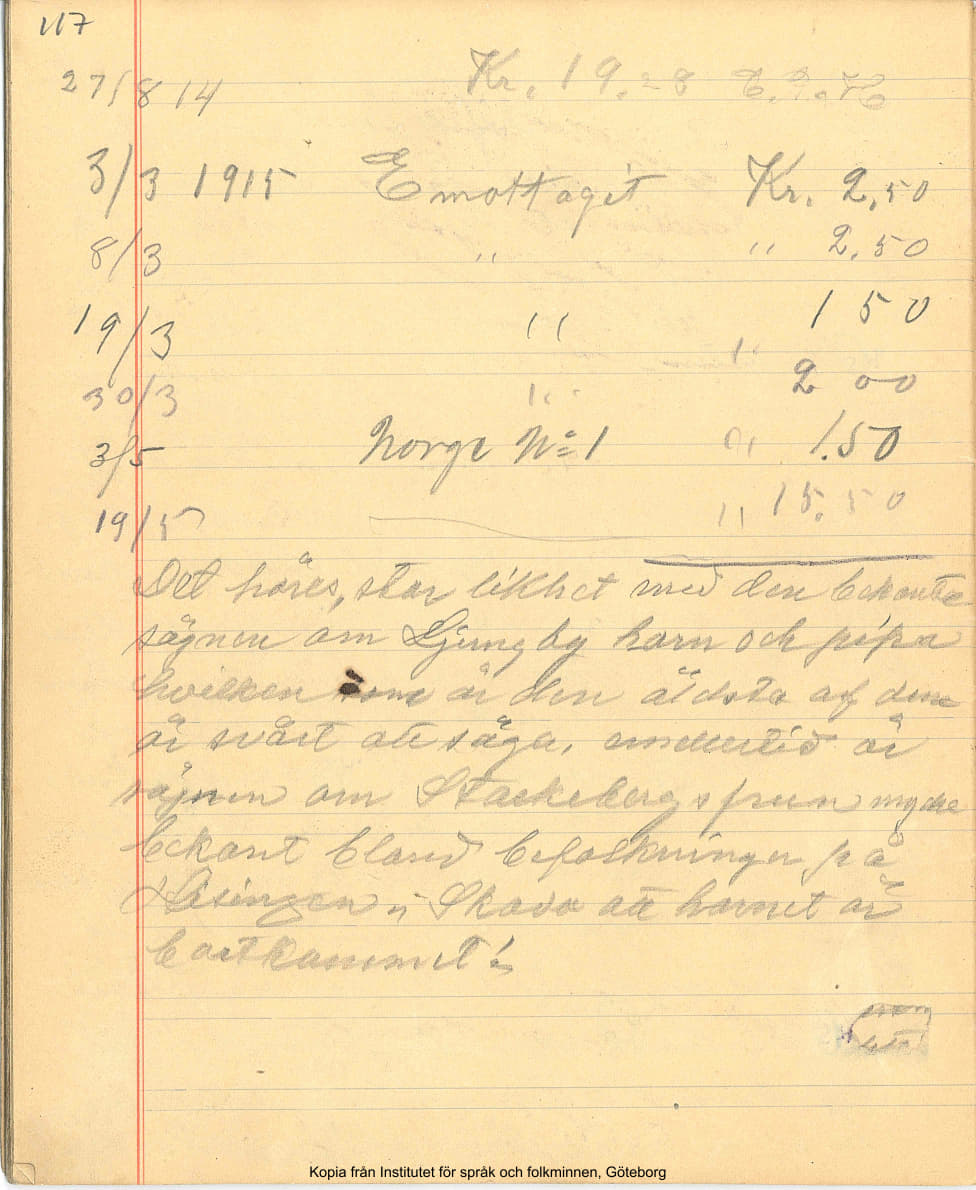 117
27/8 14 Kr. 19.28
3/3 1915 Emottagit Kr. 2,50
8/3 " " 2.50
19/3 " 1 50
30/3 " " 2 00
3/5 Norge No 1 " 1.50
19/5 " 15.50
Det höres, stor likhet med den bekanta
sägnen om Ljungby horn och pipa
hvilken som är den äldsta af dem
är svårt att säga, emellertid är
sägnen om Stackebergsfrun mycke
bekant bland befolkningen på
Skada att hornet är
bortkommet!
Kopia från Institutet för språk och folkminnen, Göteborg